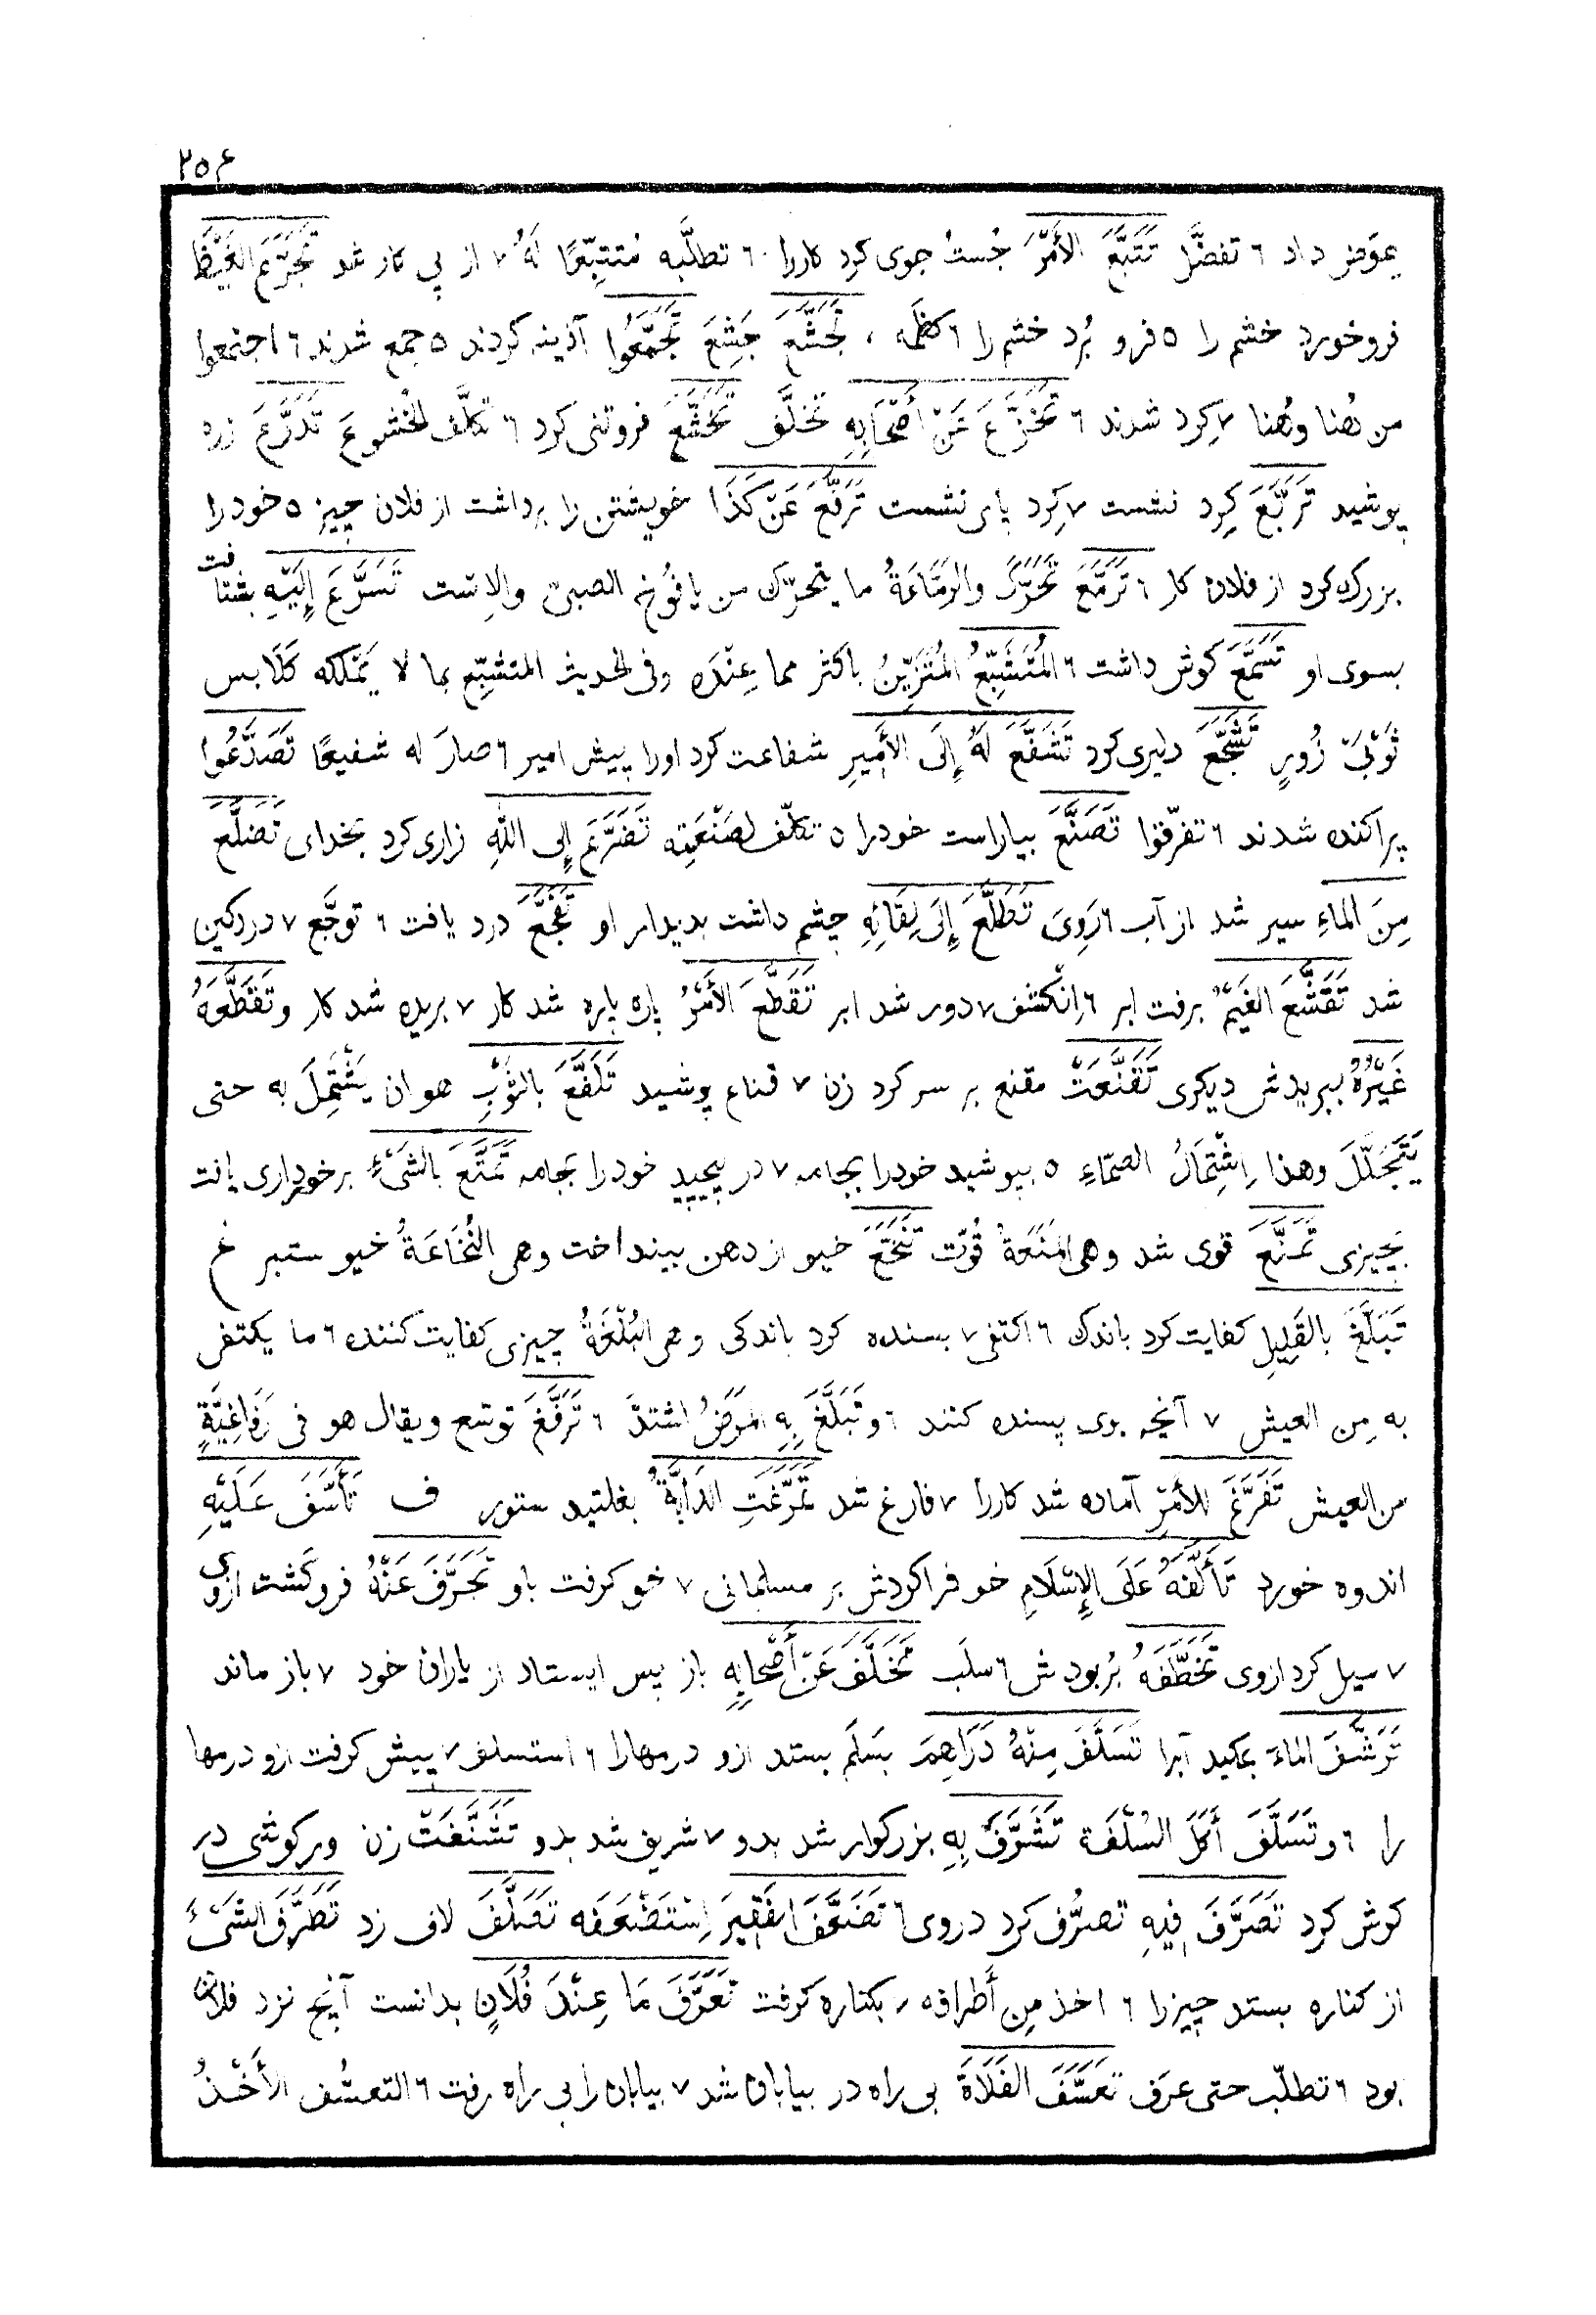 ۲۵۶
بعوض داد ٦ تفضّل تَتَبَّعَ الأَمْرَ جُست جوی کرد کاررا ٦ تطلّبه مُتتبّعًا لَهُ ٧ از پی کار شد تَجَرَّعَ الغَيْظَ
فروخورد خشم را ٥ فرو بُرد خشم را ٦ کظمه ، تَجَشَّعَ جَشِعَ تَجَمَّعُوا آذینه کردند ٥ جمع شدند ٦ اجتمعوا
من هُنا وهُنا ٧ کِرد شدند ٦ تَخَزَّعَ عَنْ أَصْحَابِهِ تَخلَّف تَخَشَّعَ فروتنی کرد ٦ تکلَّف لخشوعَ تَدَرَّعَ زره
پوشید تَرَبَّعَ کِرد نشست ٧ کِرد پای نشست تَرَفَّعَ عَنْ كَذَا خویشتن را برداشت از فلان چیز ٥ خودرا
بزرک کرد از فلان کار ٦ تَرَمَّعَ تَحَرَّكَ والرَمَّاعَةُ ما یتحرّك من یافُوخ الصبیّ والاِست تَسَرَّعَ إِلَيْهِ بشتافت
بسوی او تَسَمَّعَ کوش داشت ٦ المُتَشَبِّعُ المُتَزَيِّنُ باکثر مما عِنْدَه وفی لحدیث المتشبّع بما لا یَمْلکه کَلَابس
ثَوْبَيْ زُورٍ تَشَجَّعَ دلیری کرد تَشَفَّعَ لَهُ إِلَى الأَمِيرِ شفاعت کرد اورا پیش امیر ٦ صارَ له شفیعًا تَصَدَّعُوا
پراکنده شدند ٦ تفرّقوا تَصَنَّعَ بیاراست خودرا ٥ تکلّف لصَنْعَتِه تَضَرَّعَ إِلى اللّٰهِ زاری کرد بخدای تَضَلَّعَ
مِنَ الماءِ سیر شد از آب ٦ رَوِیَ تَطَلَّعَ إِلَى لِقَائِهِ چشم داشت بدیدار او تَفَجَّعَ درد یافت ٦ توجَّع ٧ دردکین
شد تَقَشَّعَ الغَيْمُ برفت ابر ٦ اِنْکشف ٧ دور شد ابر تَقَطَّعَ الأَمْرُ پاره پاره شد کار ٧ بریده شد کار وتَقَطَّعَهُ
غَيْرُهُ ببریدش دیکری تَقَنَّعَتْ مقنع بر سر کرد زن ٧ قناع پوشید تَلَفَّعَ بالثَّوْبِ هو ان یَشْتَمِلَ به حتی
یَتَجَلَّلَ وهذا اِشْتِمَالُ الصمّاءِ ٥ بپوشید خودرا بجامه ٧ در پیچید خودرا بجامه تَمَتَّعَ بالشَيْءِ برخورداری یافت
بچیزی تَمَنَّعَ قوی شد وهی المَنَعَةُ قُوّت تَنَخَّعَ خیو از دهن بینداخت وهی النُخَاعَةُ خیو ستبر غ
تَبَلَّغَ بالقَلِيلِ کفایت کرد باندک ٦ اکتفی ٧ بسنده کرد باندکی وهی البُلْغَةُ چیزی کفایت کننده ٦ ما یکتفی
به مِن العیش ٧ آنچه بوی پسنده کنند ٦ وتَبَلَّغَ بِهِ المَرَضُ اشتدّ ٦ تَرَفَّغَ توسّع ویقال هو فی رَفَاغِيَّةٍ
من العیش تَفَرَّغَ للأَمْرِ آماده شد کاررا ٧ فارغ شد تَمَرَّغَتِ الدَابَّةُ بغلتید ستور ف تَأَسَّفَ عَلَيْهِ
اندوه خورد تَأَلَّفَهُ عَلَى الإِسْلَامِ خو فراکردش بر مسلمانی ٧ خو کرفت باو تَحَرَّفَ عَنْهُ فروکَشت ازوی
٧ میل کرد ازوی تَخَطَّفَهُ بُربودش ٦ سلَب تَخَلَّفَ عَنْ أَصْحَابِهِ باز پس ایستاد از یاران خود ٧ باز ماند
تَرَشَّفَ الماءَ بمکید آبرا تَسَلَّفَ مِنْهُ دَرَاهِمَ بسَلَم بستد ازو درمهارا ٦ استسلف ٧ پیش کرفت ازو درمها
را ٦ وتَسَلَّفَ أَكَلَ السُلْفَة تَشَرَّفَ بِهِ بزرکوار شد بدو ٧ شریف شد بدو تَشَنَّفَتْ زن ورکوشی در
کوش کرد تَصَرَّفَ فِيهِ تصرُّف کرد دروی ٦ تَضَعَّفَ الفَقِيرَ اِسْتَضْعَفَه تَصَلَّفَ لاف زد تَطَرَّفَ الشَيْءَ
از کناره بستد چیزرا ٦ اخذ مِن أَطرافه ٧ بکناره کرفت تَعَرَّفَ مَا عِنْدَ فُلَانٍ بدانست آنچ نزد فلان
بود ٦ تطلّب حتی عرَف تَعَسَّفَ الفَلَاةَ بی راه در بیابان شد ٧ بیابان را بی راه رفت ٦ التعسُّف الأَخْذُ